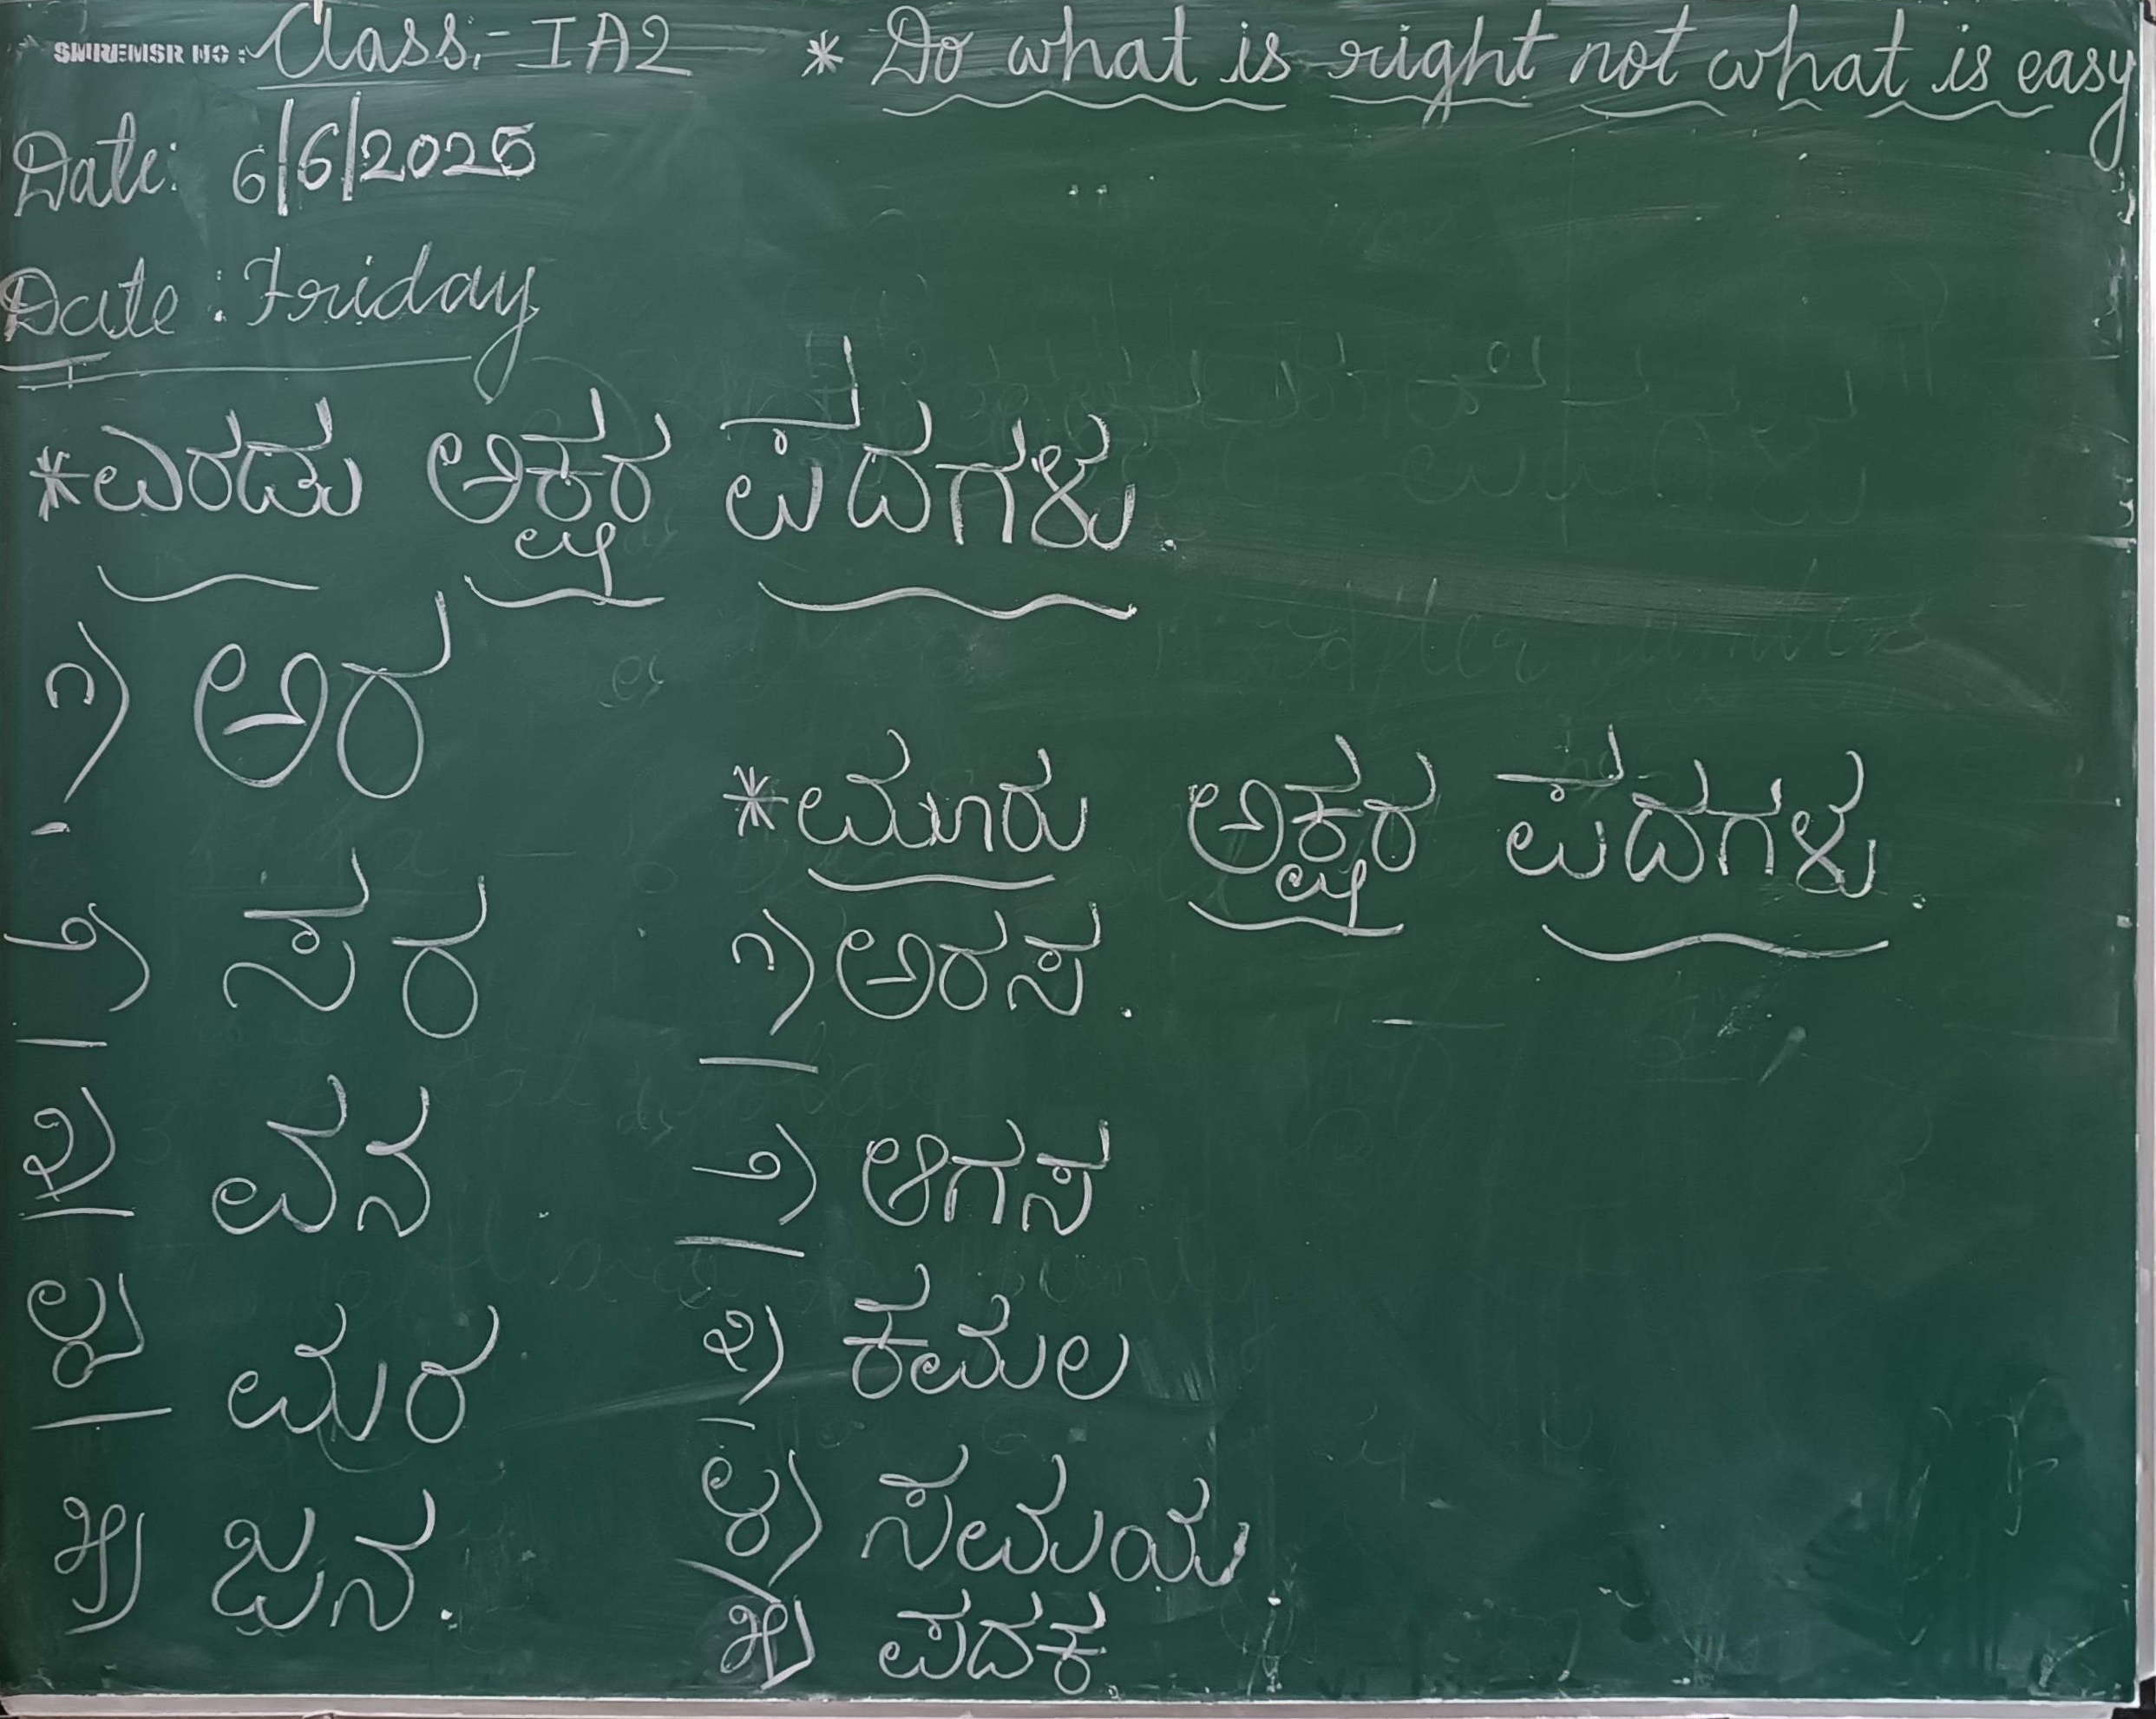 Class:- IA2 * Do what is right not what is easy
Date: 6/6/2025
Date : Friday
*ಎರಡು ಅಕ್ಷರ ಪದಗಳು.
೧) ಅರ
೨) ಸರ
೩) ವನ
೪) ಮರ
೫) ಜನ.
*ಮೂರು ಅಕ್ಷರ ಪದಗಳು.
೧) ಅರಸ.
೨) ಆಗಸ
೩) ಕಮಲ
೪) ಸಮಯ.
೫) ಪದಕ